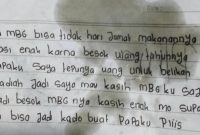 MBG bisa tidak hari Jumat makanannya
asi enak karna besok ulang tahunnya
Papaku saya ga punya uang untuk belikan
hadiah Jadi saya mau kasih MBG ku
adi besok MBG nya kasih enak
bisa jad kado buat Papaku Pliis